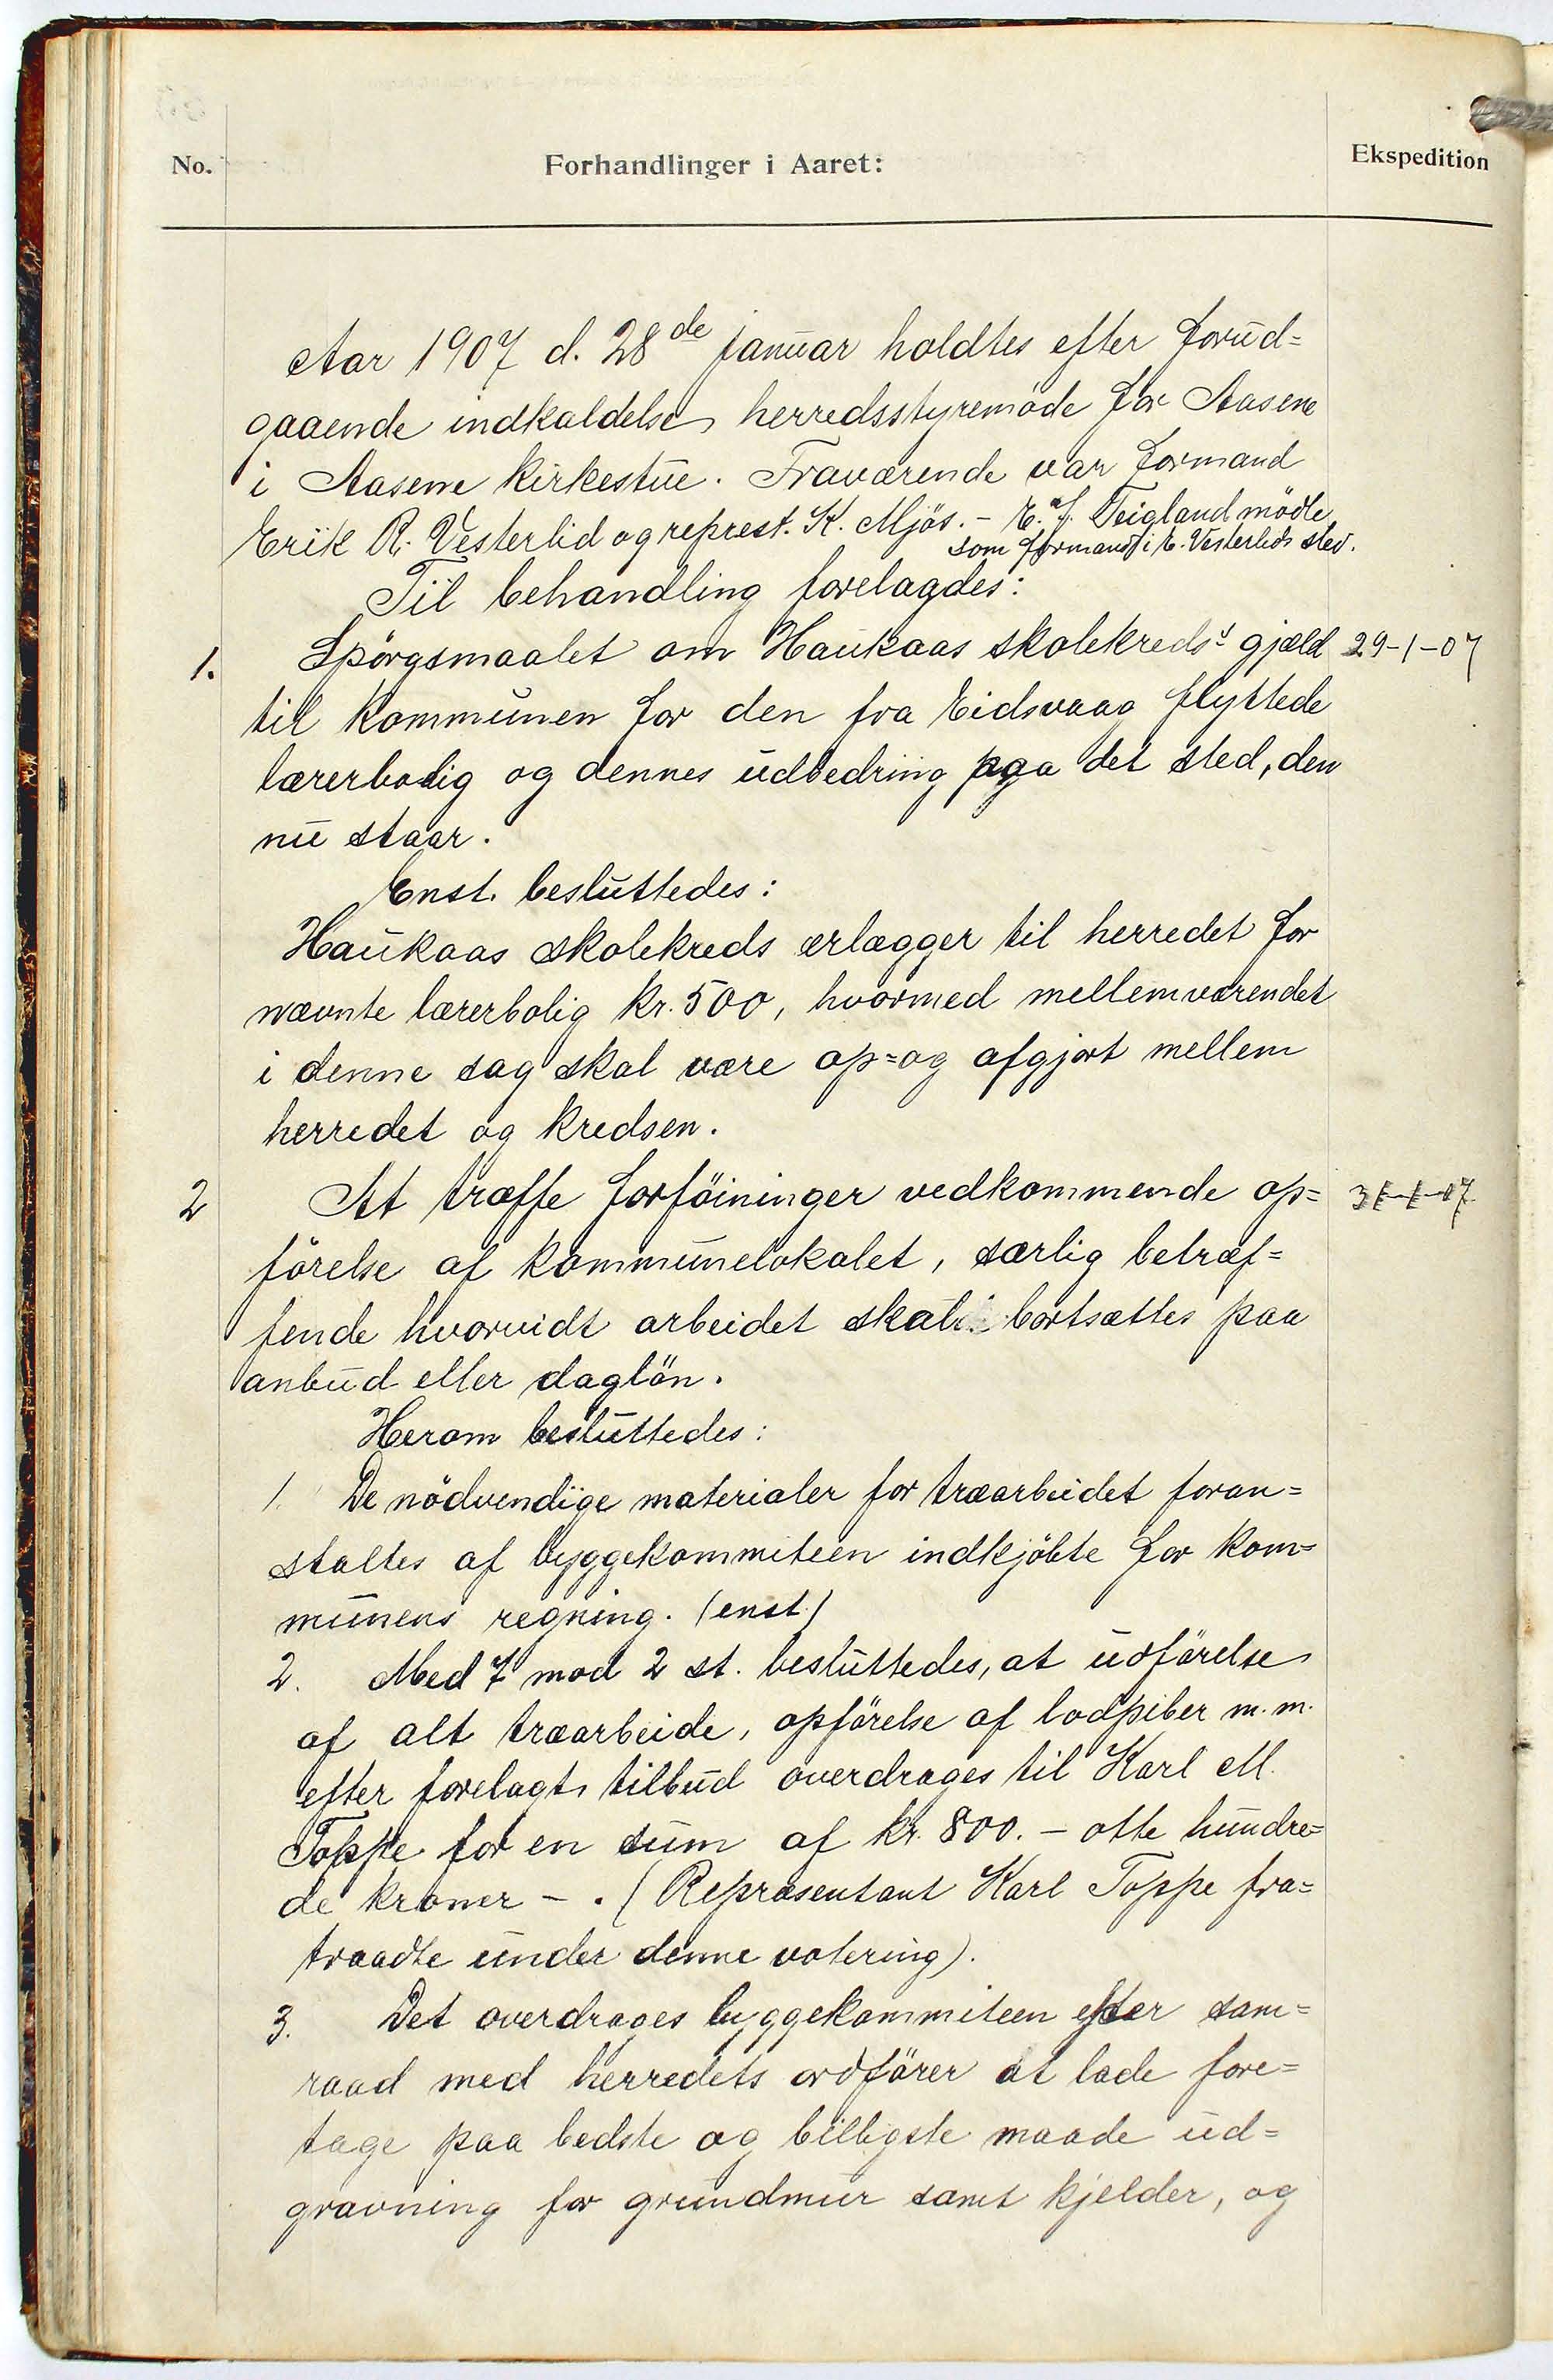 No.	Forhandlinger i Aaret:	Ekspedition
Aar 1907 d. 28de januar holdtes efter forud=
gaaende indkaldelse herredsstyremöde for Aasene
i Aasene kirkestue. Fraværende var formand
Erik R. Vesterlid og represt. K. Mjös. - E. J. Teigland mödte
som formand i E. Vesterlids sted.
Til behandling forelagdes:
1. Spörgsmaalet om Haukaas skolekreds's gjæld 29-1-07
til kommunen for den fra Eidsvaag flyttede
lærerbolig og dennes udbedring paa det sted, den
nu staar.
Enst. besluttedes:
Haukaas skolekreds erlægger til herredet for
nævnte lærerbolig kr. 500, hvormed mellemværendet
i denne sag skal være op= og afgjort mellem
herredet og kredsen.
2 At træffe forföininger vedkommende op= 31-1-07.
förelse af kommunelokalet, særlig betræf=
fende hvorvidt arbeidet skal bortsættes paa
anbud eller daglön.
Herom besluttedes:
1. De nödvendige materialer for træarbeidet foran=
staltes af byggekommiteen indkjöbte for kom=
munens regning. (enst.)
2. Med 7 mod 2 st. besluttedes, at udförelse
af alt træarbeide, opförelse af lodpiber m.m.
efter forelagt tilbud overdrages til Karl M.
Toppe for en sum af kr. 800. - otte hundre=
de kroner - . (Repræsentant Karl Toppe fra=
traadte under denne votering).
3. Det overdrages byggekommiteen efter sam=
raad med herredets ordförer at lade fore=
tage paa bedste og billigste maade ud=
gravning for grundmur samt kjelder, og